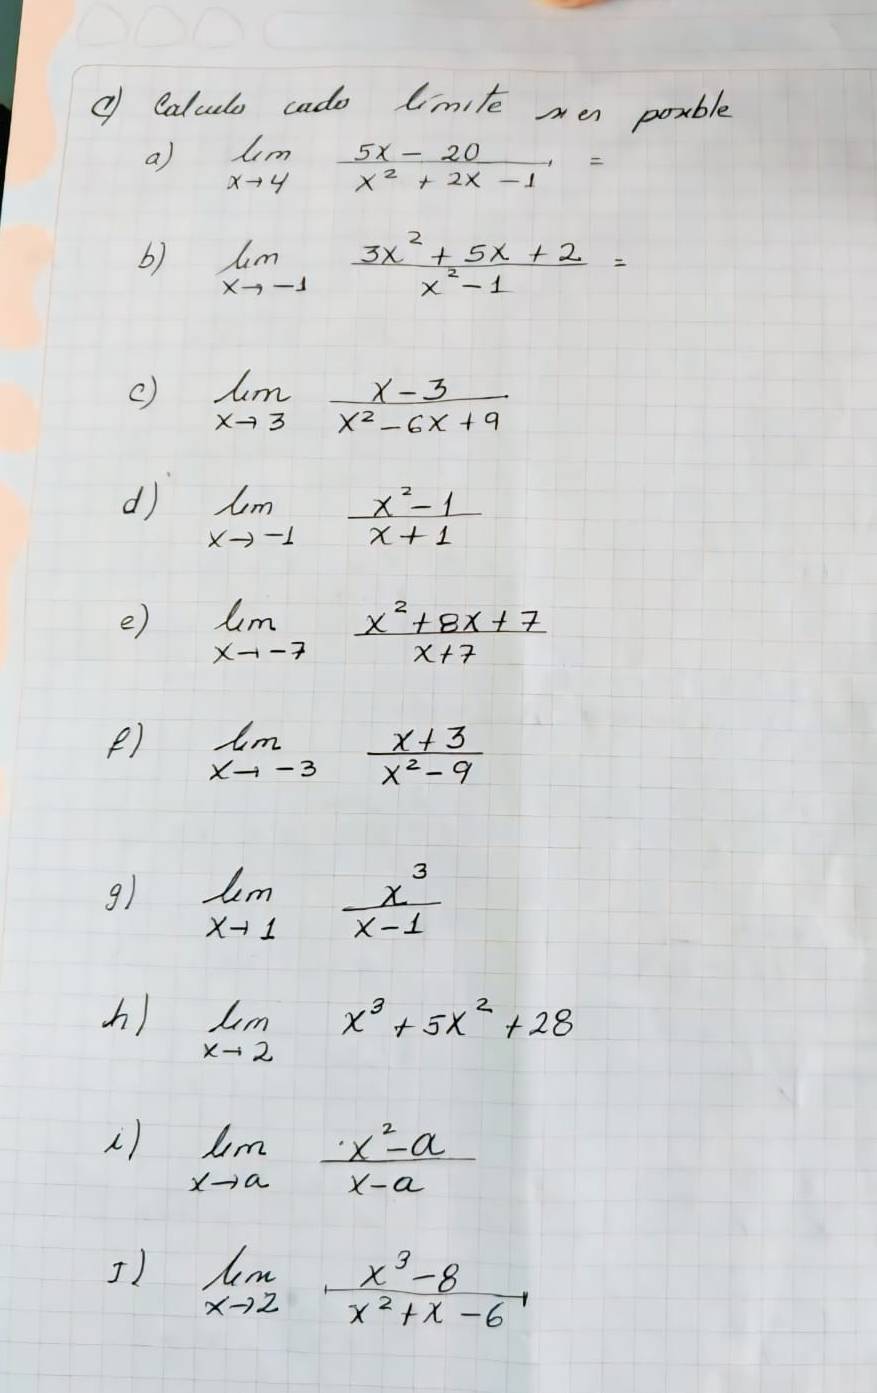 c) Calculo cada límite si es posible
a) lim x→4 (5x - 20)/(x² + 2x - 1) =
b) lim x→-1 (3x² + 5x + 2)/(x² - 1) =
c) lim x→3 (x - 3)/(x² - 6x + 9)
d) lim x→-1 (x² - 1)/(x + 1)
e) lim x→-7 (x² + 8x + 7)/(x + 7)
f) lim x→-3 (x + 3)/(x² - 9)
g) lim x→1 x³/(x - 1)
h) lim x→2 x³ + 5x² + 28
i) lim x→a (x² - a)/(x - a)
J) lim x→2 (x³ - 8)/(x² + x - 6)